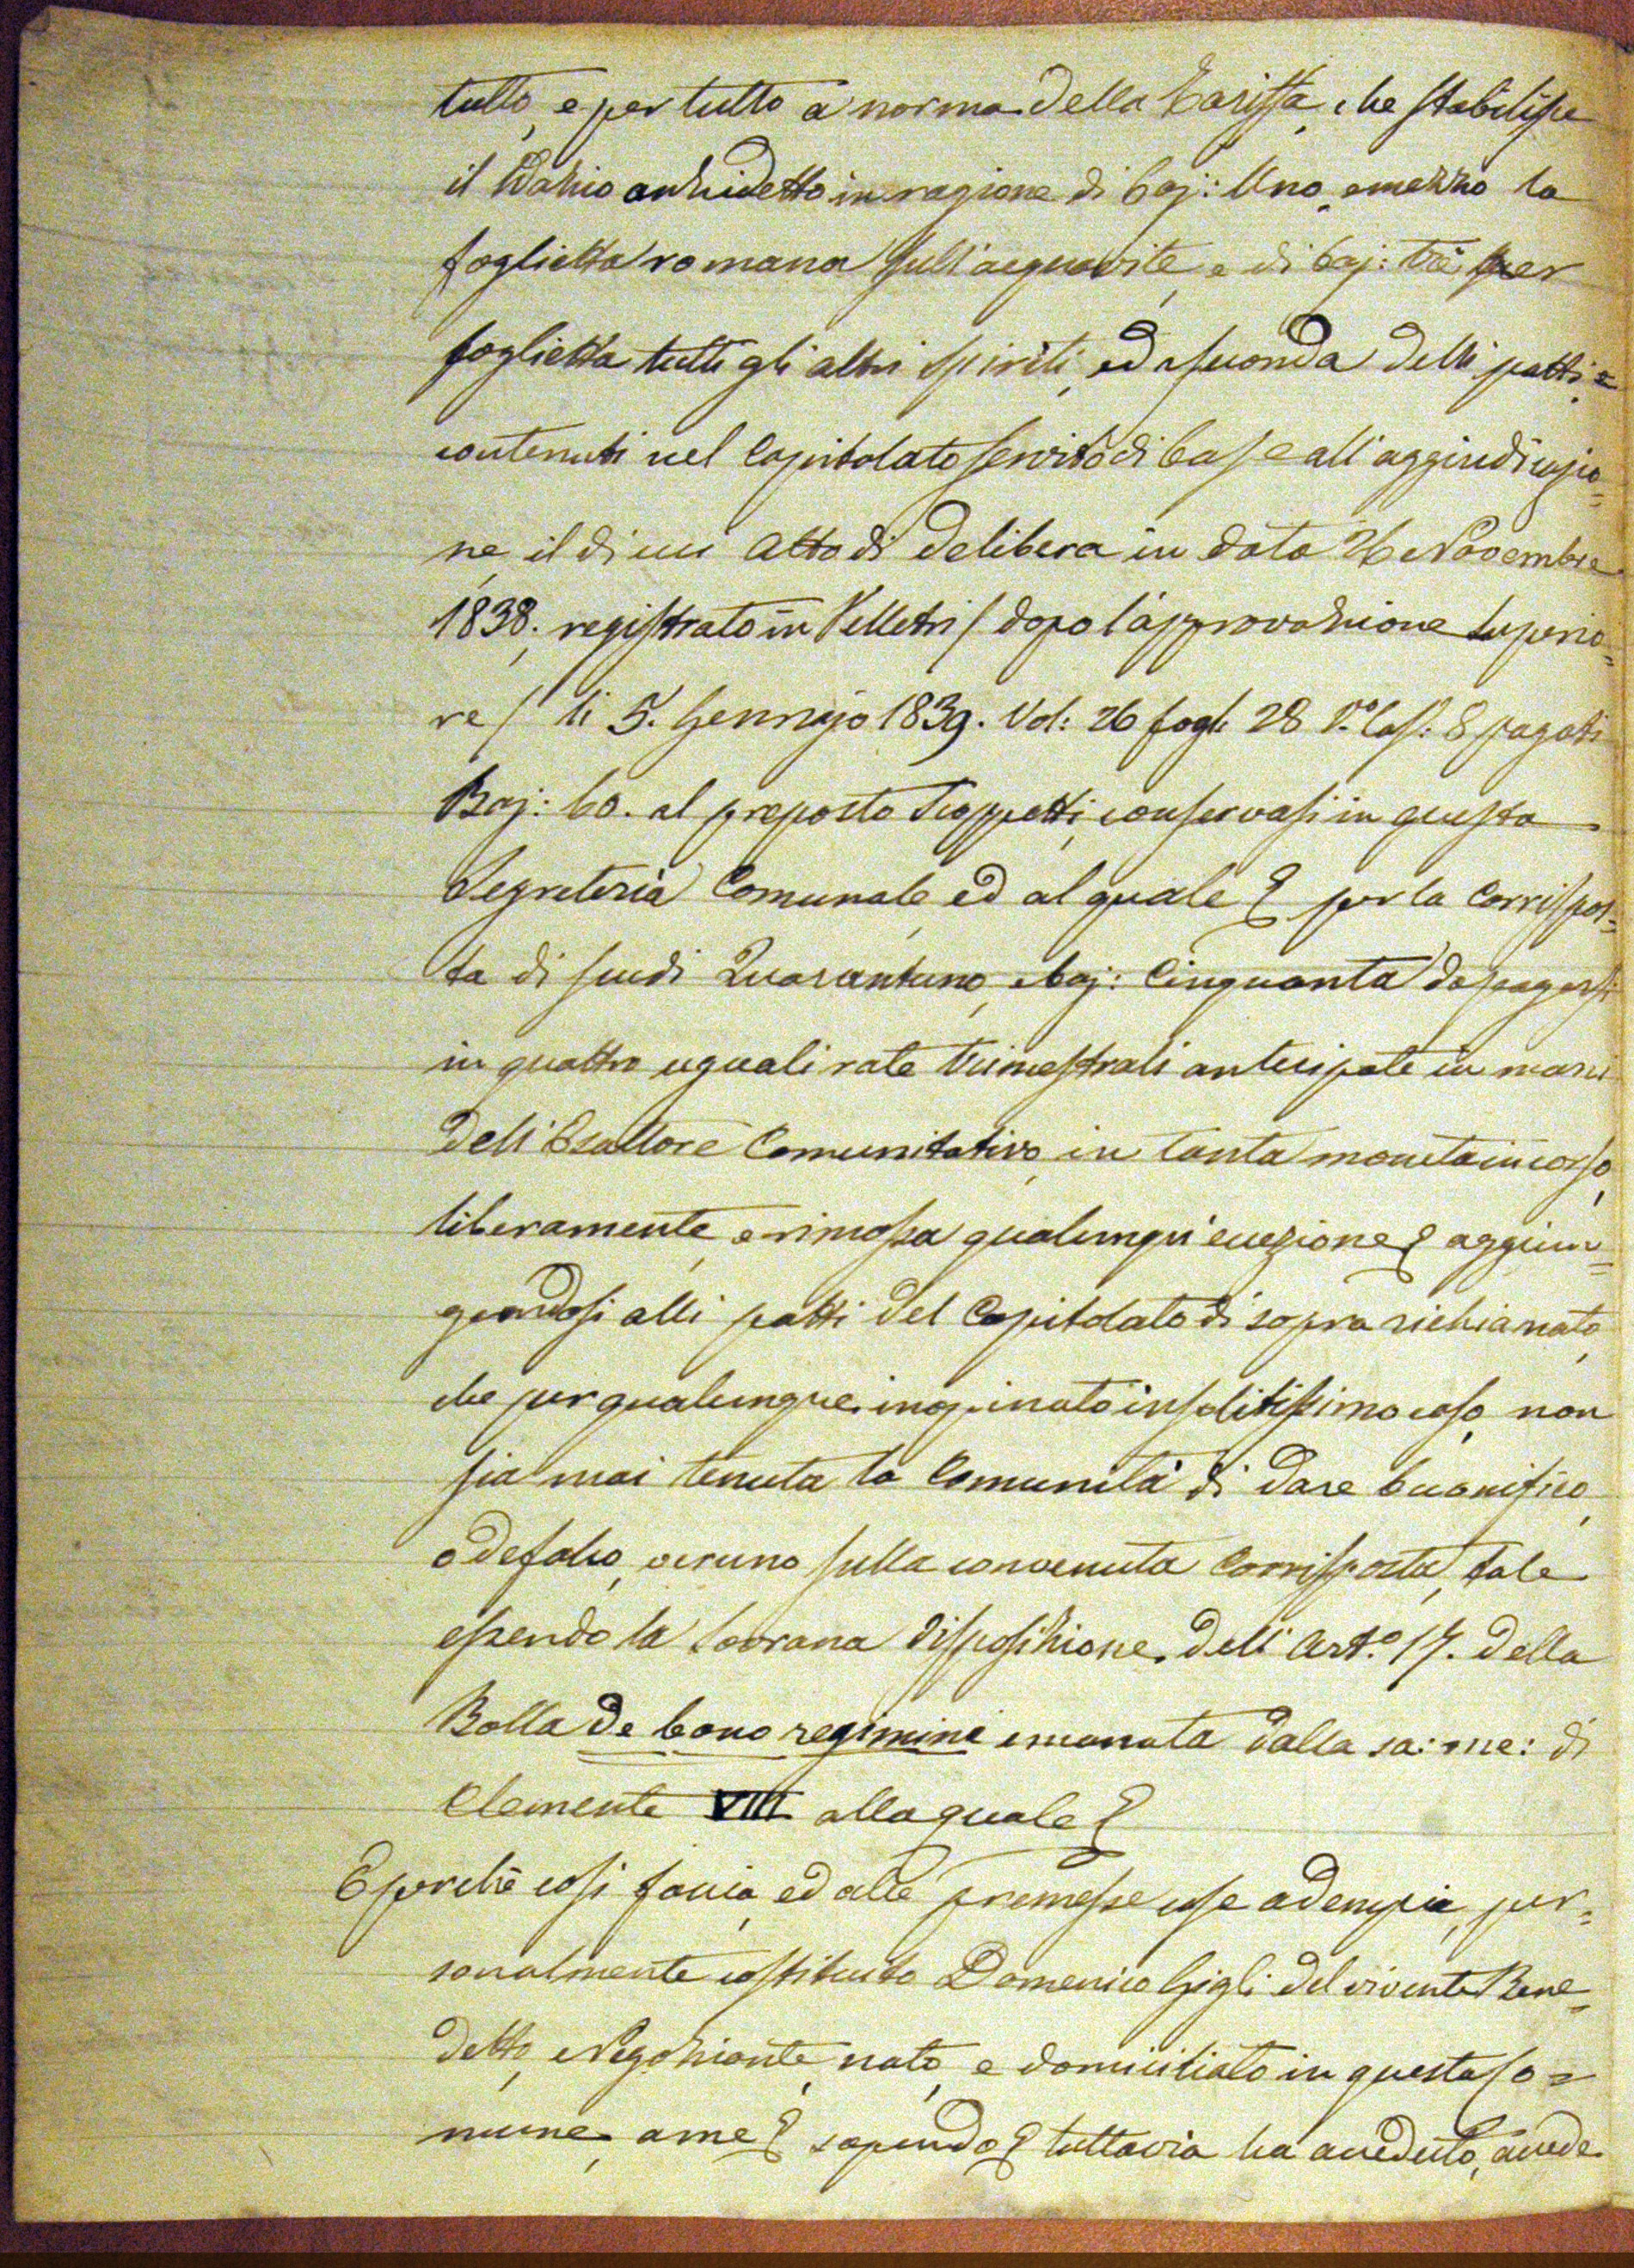 tutto, e per tutto a norma della Tariffa, che stabilisce
il Dazio anzidetto in ragione di baj: Uno, e mezzo la
foglietta romana sull'acquavite, e di baj: trè per
foglietta tutti gli altri spiriti, ed a seconda delli patti =
contenuti nel Capitolato servito di base all'aggiudicazio=
ne, il di cui Atto di delibera in data 26 Novembre
1838., registrato in Velletri / dopo l'approvazione Superio=
re / li 5. Gennajo 1839. Vol: 26 fogl: 28 V.º Cas: 8 pagati
Baj: 60. al preposto conservasi in questa
Segreteria Comunale, ed al quale & per la Corrispos=
ta di scudi Quarantuno, e baj: Cinquanta da pagarsi
in quattro uguali rate trimestrali anticipate in mani
dell'Esattore Comunitativo, in tanta moneta in corso,
liberamente, e rimossa qualunqu'eccezione & aggiun=
gendosi alli patti del Capitolato di sopra richiamato,
che per qualunque inopinato insolitissimo caso, non
sia mai tenuta la Comunità di dare buonifico,
o defalco, veruno sulla convenuta Corrisposta, tale
essendo la Sovrana disposizione dell'Art.º 17. della
Bolla de bono regimine emanata dalla sa: me: di
Clemente VIII alla quale &
E perchè così faccia, ed alle premesse cose adempia, per=
sonalmente costituito Domenico Gigli del vivente Bene=
detto, Negoziante, nato, e domiciliato in questa Co=
mune, a me & sapendo & tuttavia ha acceduto, accede